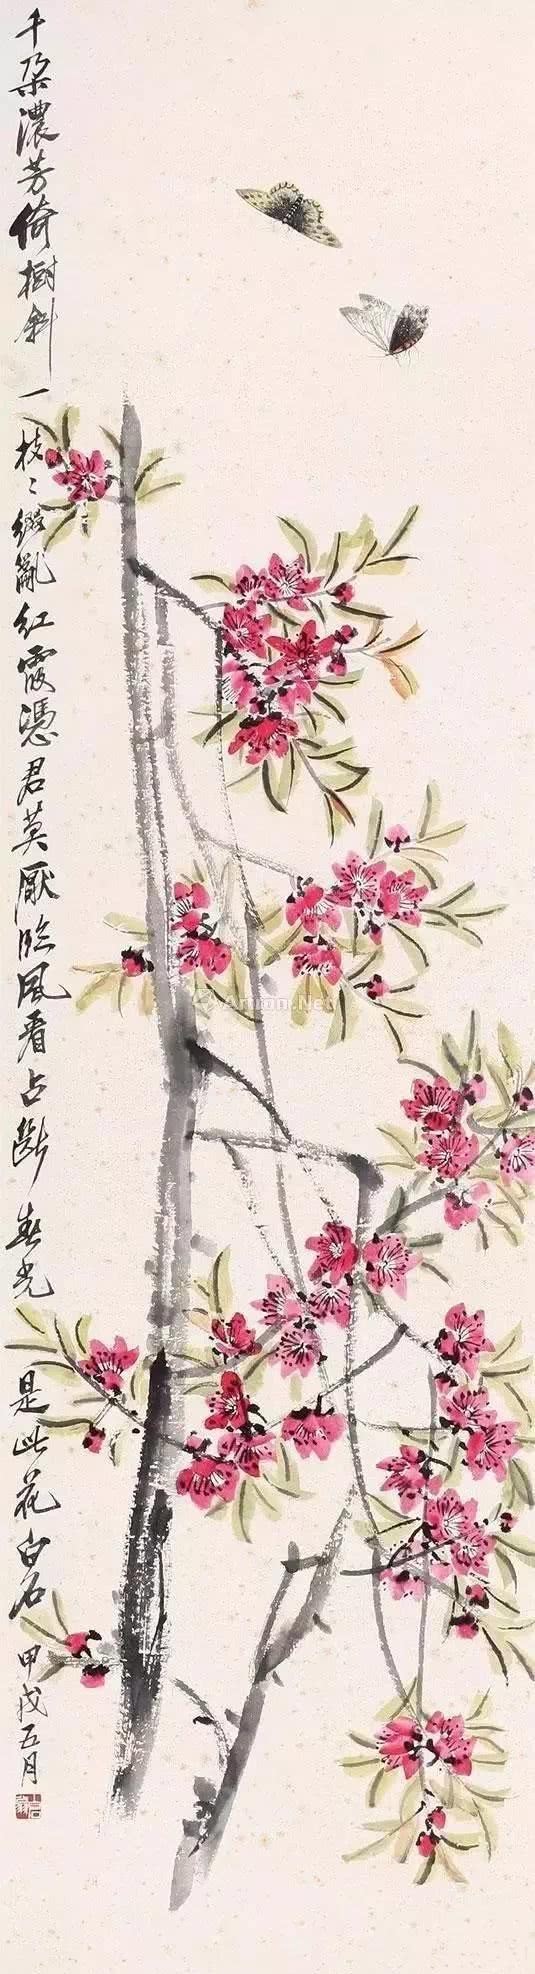 千朵濃芳倚樹斜一枝〻綴亂紅霞憑君莫厭臨風看占斷春光是此花白石
甲戌五月
Artron.Net